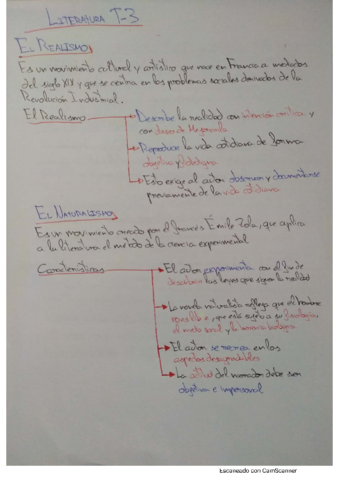 LITERATURA T-3
EL REALISMO
Es un movimiento cultural y artístico que nace en Francia a mediados
del siglo XIX y que se centra en los problemas sociales derivados de la
Revolución Industrial.
El Realismo
Describe la realidad con intención crítica y
con deseo de
Reproduce la vida cotidiana de forma
objetiva y
Esto exige al autor observar y documentarse
previamente de la vida cotidiana
EL NATURALISMO
Es un movimiento creado por el francés Émile Zola, que aplica
a la literatura el método de la ciencia experimental
Características
El autor experimenta con el fin de
descubrir las leyes que siguen la realidad
La novela naturalista refleja que el hombre
no es libre, que está sujeto a su fisiología,
el medio social y la herencia biológica
El autor se recrea en los
aspectos desagradables
La actitud del narrador debe ser
objetiva e impersonal
Escaneado con CamScanner